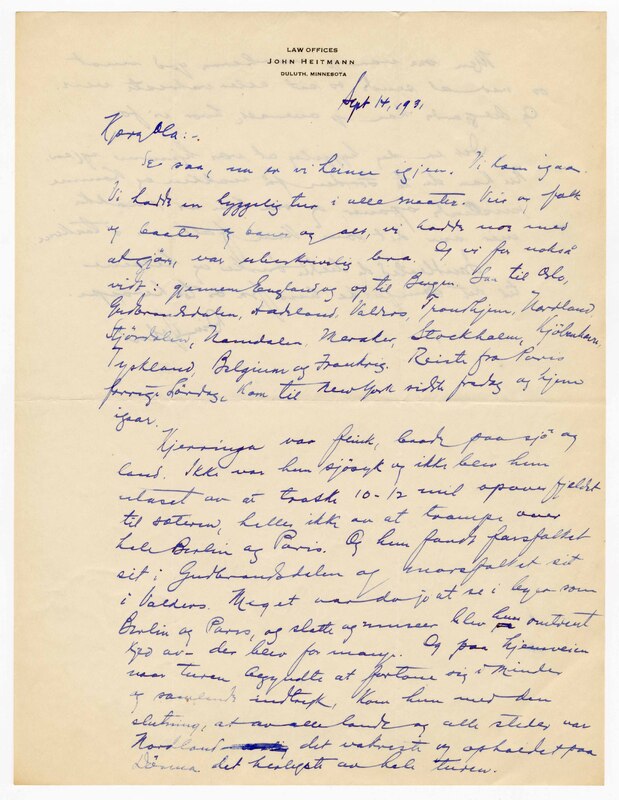 LAW OFFICES
JOHN HEITMANN
DULUTH, MINNESOTA
Sept 14, 1931
Kjære Ola:-
Se saa, nu er vi heime igjen. Vi kom igaar.
Vi hadde en hyggelig tur i alle maater. Veir og folk
og baater og baner og alt, vi hadde noe med
at gjöre, var ubeskrivelig bra. Og vi for nokså
vidt: gjennem England og til Bergen. Saa til Oslo,
Gudbrandsdalen, Hadeland, Valders, Trondhjem, Nordland,
Stjördalen, Namdalen, Meraker, Stockholm, Kjöbenhavn,
Tyskland, Belgium og Frankrig. Reiste fra Paris
forrige Lördag, kom til New York sidste fredag og hjem
igaar.
Kjerringa var flink, baade paa sjö og
land. Ikke var hun sjösyk og ikke blev hun
utaset av at traske 10-12 mil opover fjeldet
til sæteren, heller ikke av at trampe over
hele Berlin og Paris. Og hun fandt farsfolket
sit i Gudbrandsdalen og morsfolket sit
i Valders. Meget var da jo at se i byer som
Berlin og Paris, og slotte og museer blev hun omtrent
kjed av - der blev for mange. Og paa hjemveien
naar turen begyndte at fortone sig i minder
og samlende indtryk, kom hun med den
slutning, at av alle lande og alle steder var
Nordland det vakreste og opholdet paa
Dönna det herligste av hele turen.